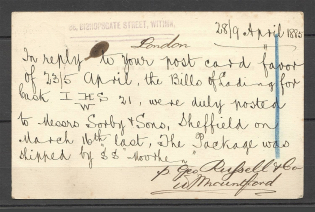 BISHOPSGATE STREET, WITHIN,
London
28/9 April 1885
In reply to your post card favor
of 23/5 April, the Bills of Lading for
Cask I H S 21, were duly posted
W
to Messrs Sorby & Sons, Sheffield on
March 16th last, The Package was
shipped by "SS
p Geo Russell & Co
W Mountford